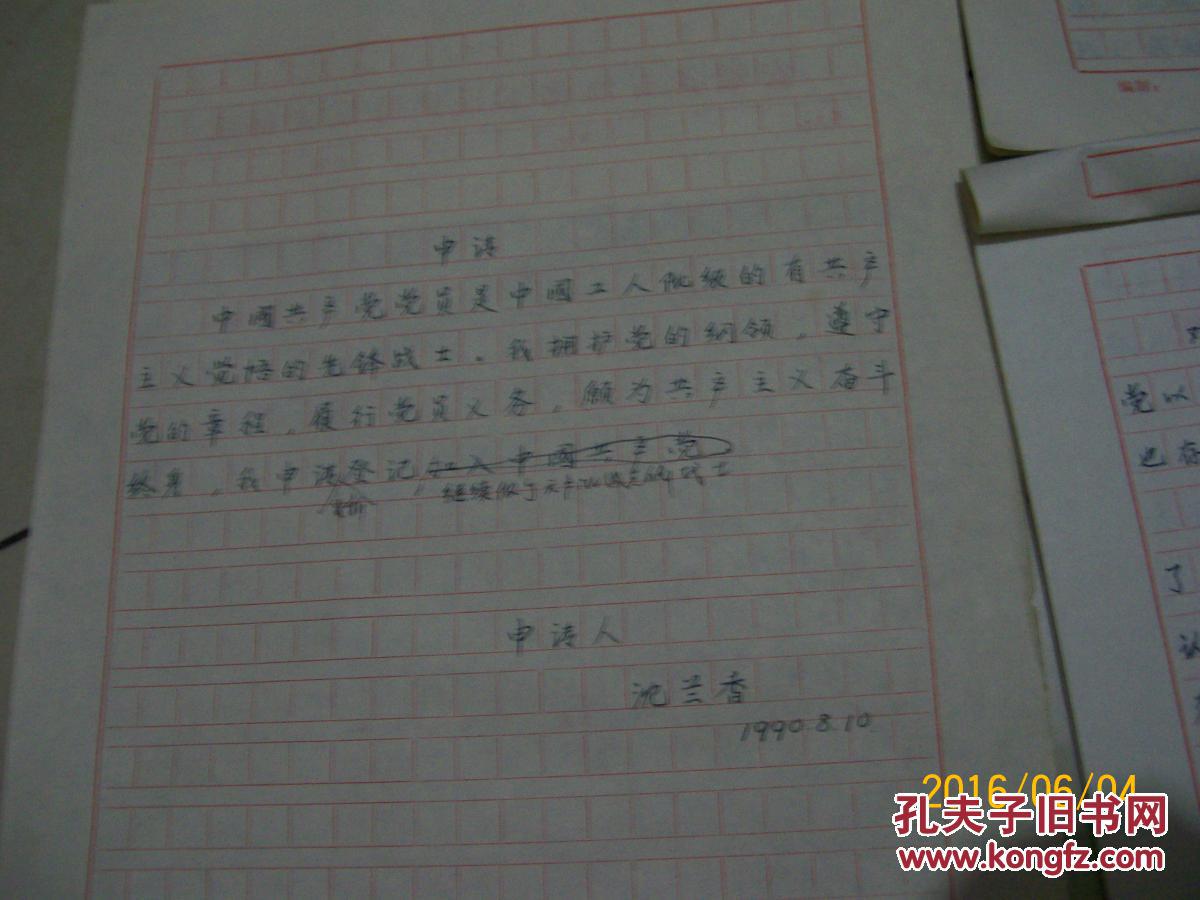 申请
中國共产党党员是中國工人阶级的有共产
主义觉悟的先锋战士。我拥护党的纲领，遵守
党的章程，履行党员义务，願为共产主义奋斗
终身，我申请登记，加入中國共产党
重新
继续做一个无产阶级先锋战士
申请人
沈兰香
1990.8.10
编别：
党以
也存
了
认
2016/06/04
孔夫子旧书网
www.kongfz.com